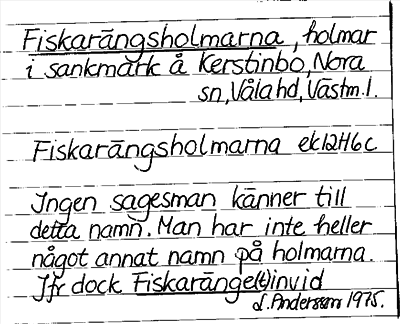 Fiskarängsholmarna, holmar
i sankmark å Kerstinbo, Nora
sn, Våla hd, Västm.l.
Fiskarängsholmarna ek12H6c
Ingen sagesman känner till
detta namn. Man har inte heller
något annat namn på holmarna.
Jfr dock Fiskaränge(t) invid
L. Andersson 1975.